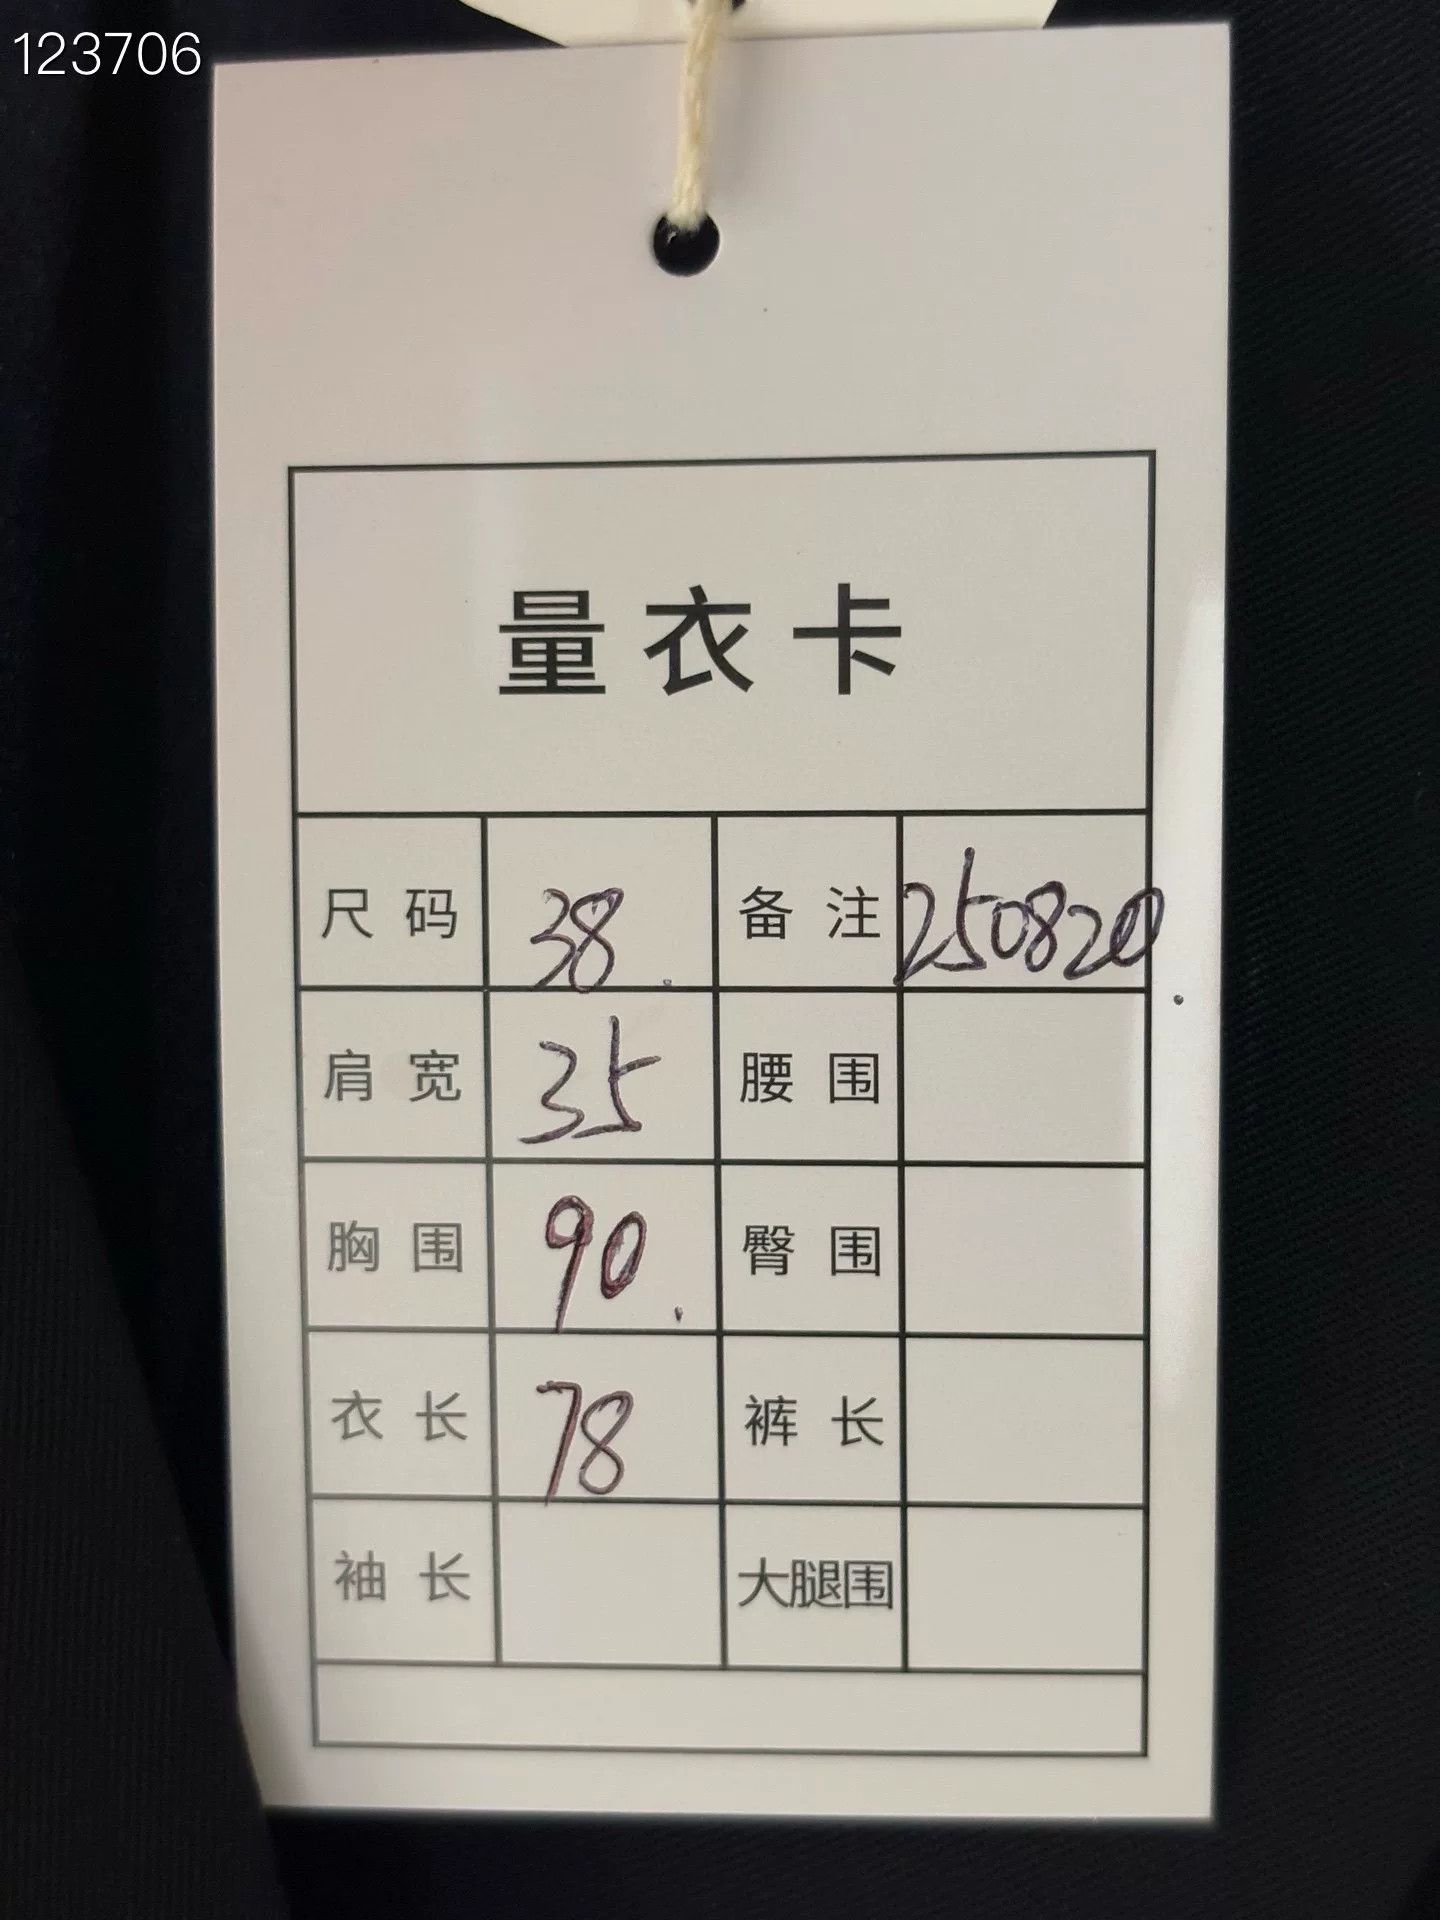 123706
量衣卡
尺码 38. 备注 250820
肩宽 35 腰围
胸围 90. 臀围
衣长 78 裤长
袖长 大腿围